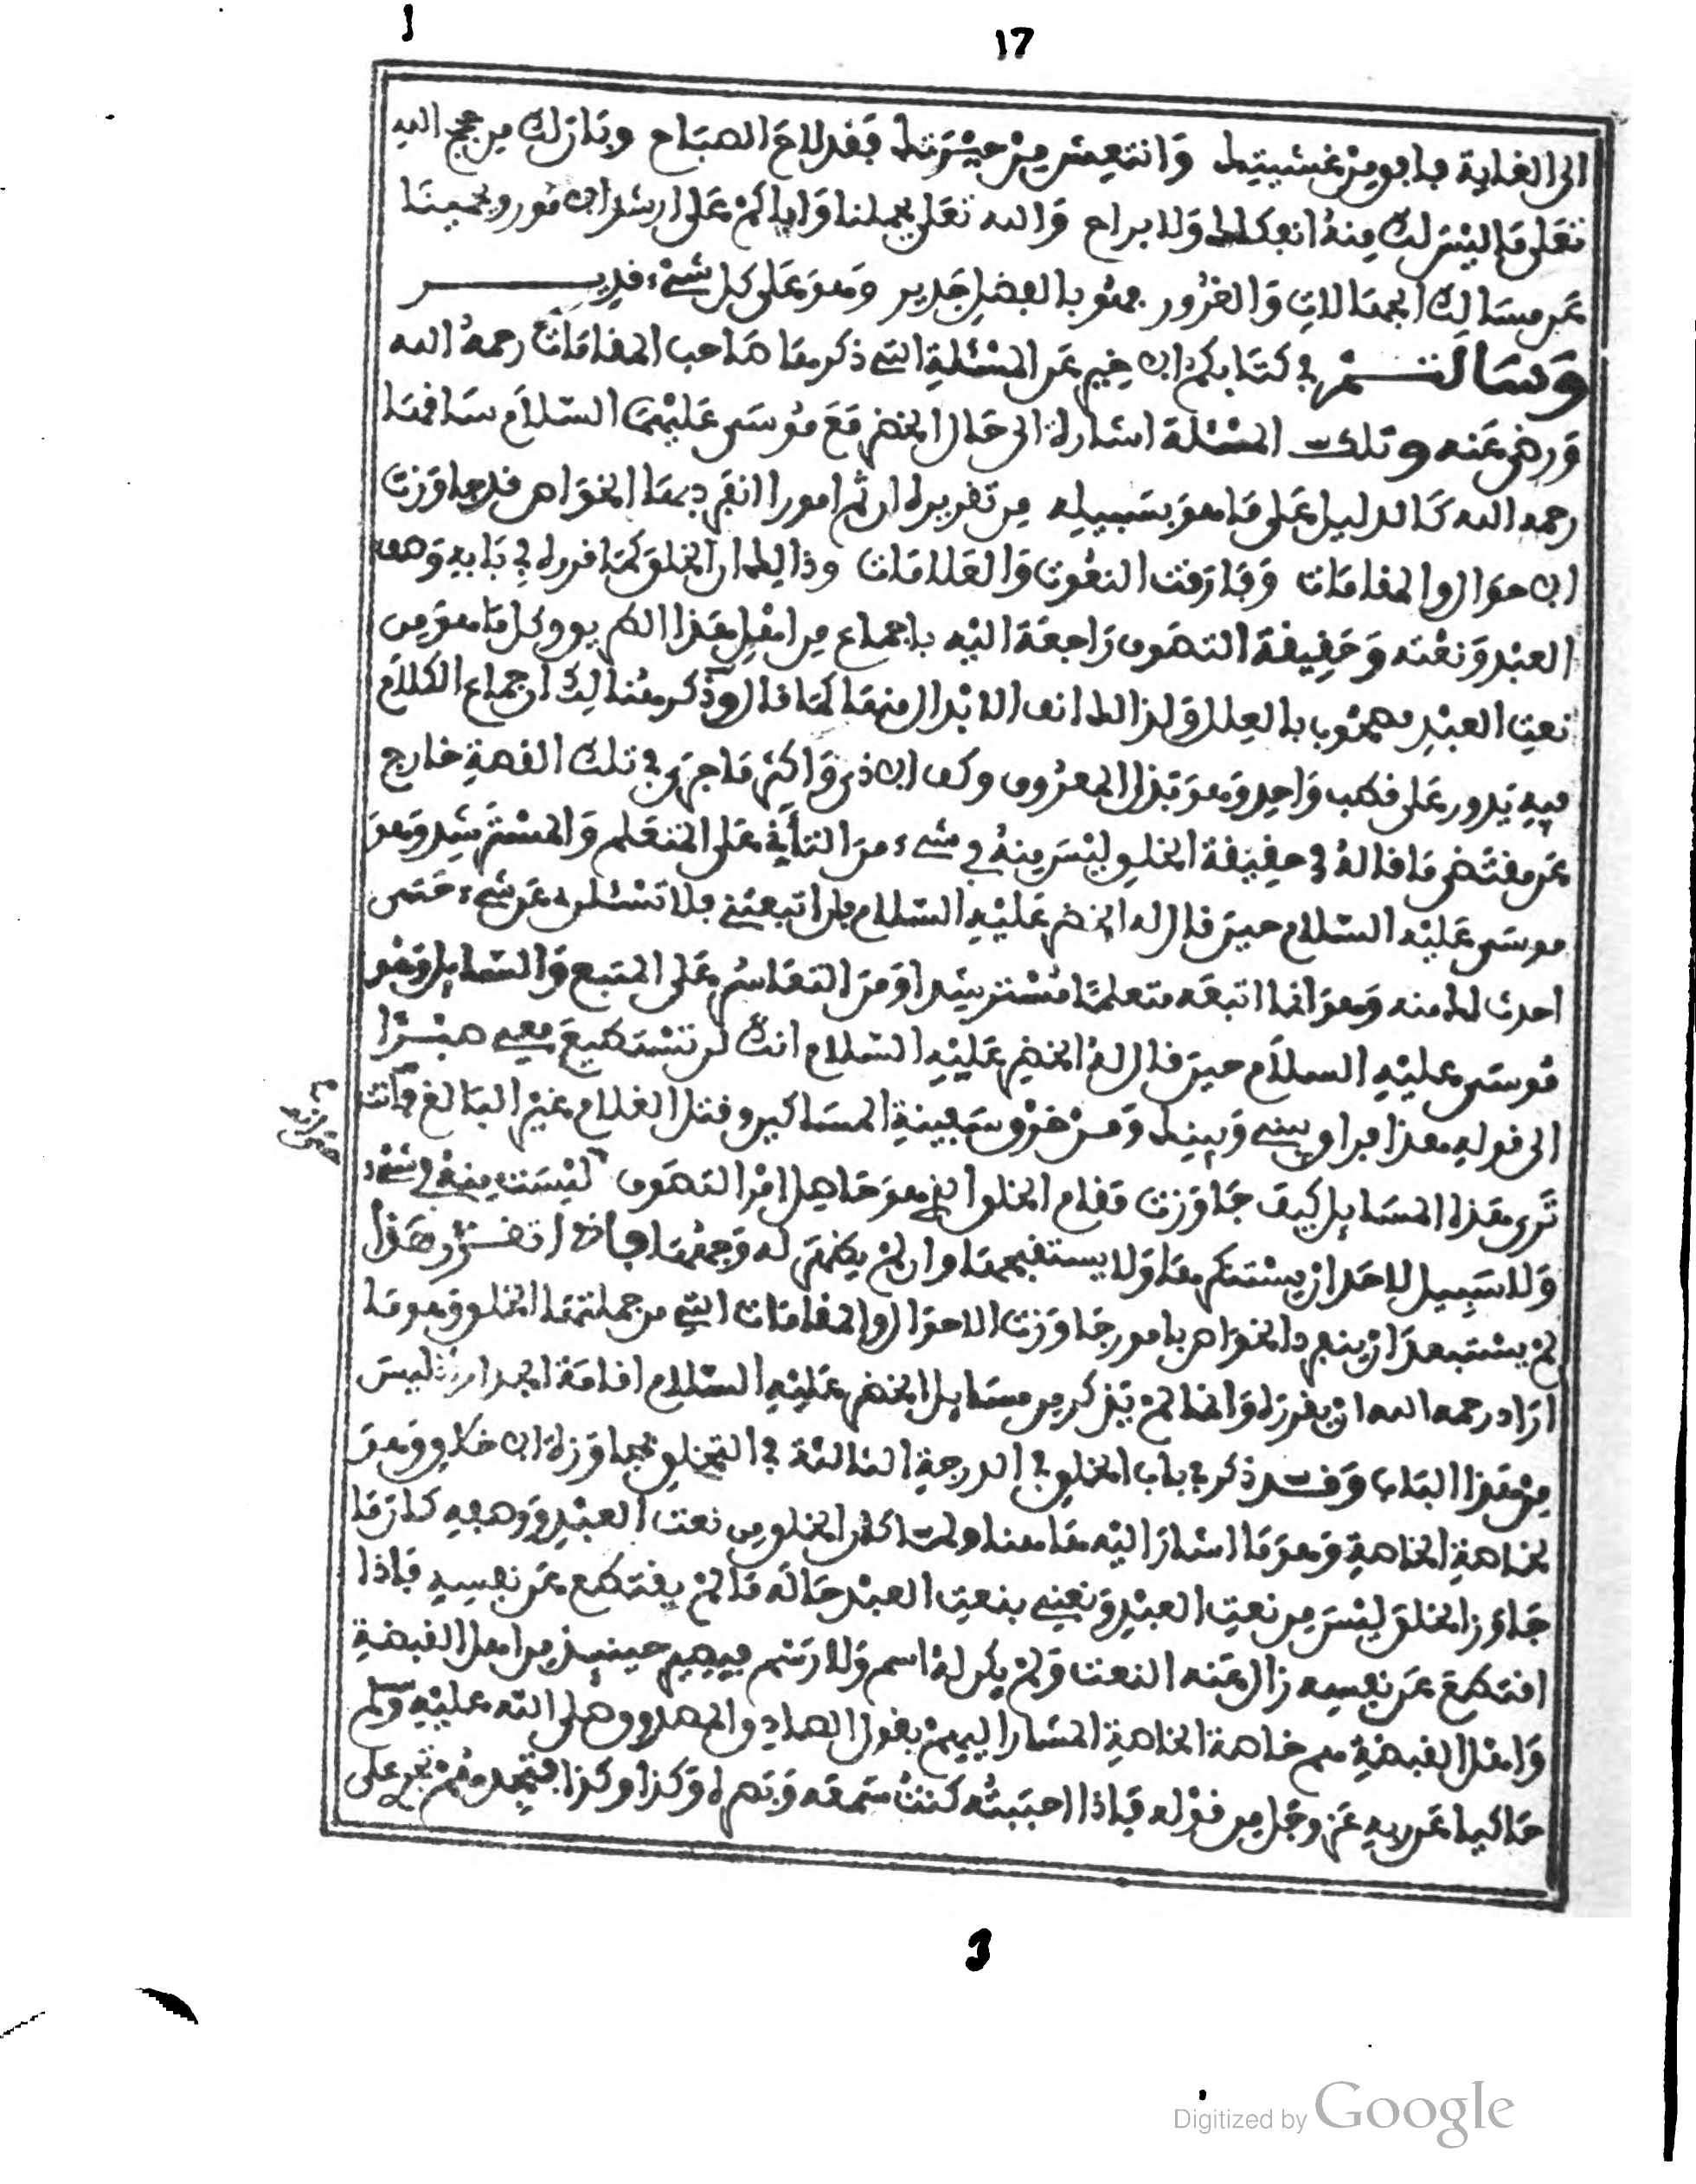 17
الى الغاية فافق من غشيتك وانتعش من حيرتك فقد لاح الصباح وبان لك من حجج الله
تعلى ما ليس لك منه انفكاك ولا براح والله تعلى يحملنا واياكم على ارشد الامور ويحمينا
عن مسالك الجهالات والغرور فهو بالفضل جدير وهو على كل شيء قدير
وسالتم في كتابكم الاخير عن المسئلة التي ذكرها صاحب المقامات رحمه الله
ورضي عنه وتلك المسئلة اشارة الى حال الخضر مع موسى عليهما السلام ساقها
رحمه الله كالدليل على ما هو بسبيله من تقريره ان ثم امورا انفرد بها الخواص قد جاوزت
الاحوال والمقامات وفارقت النعوت والعلامات وذلك ان الخلق كما قرره في بابه وصف
العبد ونعته وحقيقة التصوف راجعة اليه باجماع من اهل هذا الطريق وكل ما هو من
نعت العبد مصحوب بالعلل ولذلك انف الابدال منها كما قال وذكر هنالك ان جماع الكلام
فيه يدور على قطب واحد وهو بذل المعروف وكف الاذى واكثر ما جرى في تلك القصة خارج
عن مقتضى ما قاله في حقيقة الخلق ليس منه في شيء من التأبي على المتعلم والمسترشد وهو
موسى عليه السلام حين قال له الخضر عليه السلام فان اتبعتني فلا تسئلن عن شيء حتى
احدث لك منه وهو انما اتبعه متعلما مسترشدا ومن التعاسر على المتبع والسايل وهو
موسى عليه السلام حين قال له الخضر عليه السلام انك لن تستطيع معي صبرا
الى قوله هذا فراق بيني وبينك ومن خرق سفينة المساكين وقتل الغلام غير البالغ فانت
ترى هذه المسايل كيف جاوزت مقام الخلق الذي هو حاصل امر التصوف ليست منه في شيء
ولا سبيل لاحد ان يستنكرها ولا يستقبحها وان لم يظهر له وجهها فاذا تقرر هذا
لم يستبعد ان ينفرد الخواص بامور جاوزت الاحوال والمقامات التي من جملتها الخلق وهو ما
اراد رحمه الله ان يقرره وانما لم يذكر من مسايل الخضر عليه السلام اقامة الجدار اذ ليس
من هذا الباب وقد ذكر في باب الخلق في الدرجة الثالثة في التخلق مجاوزة الاخلاق وهو
لخاصة الخاصة وهو ما اشار اليه هاهنا ولما كان الخلق من نعت العبد ووصفه كان ما
جاوز الخلق ليس من نعت العبد ونعني بنعت العبد حاله ما لم يقتطع عن نفسه فاذا
اقتطع عن نفسه زال عنه النعت ولم يكن له اسم ولا رسم فيصير حينئذ من اهل القبضة
واهل القبضة هم خاصة الخاصة المشار اليهم بقول الصادق المصدوق صلى الله عليه وسلم
حاكيا عن ربه عز وجل من قوله فاذا احببته كنت سمعه وبصره وكذا وكذا
3
Digitized by Google